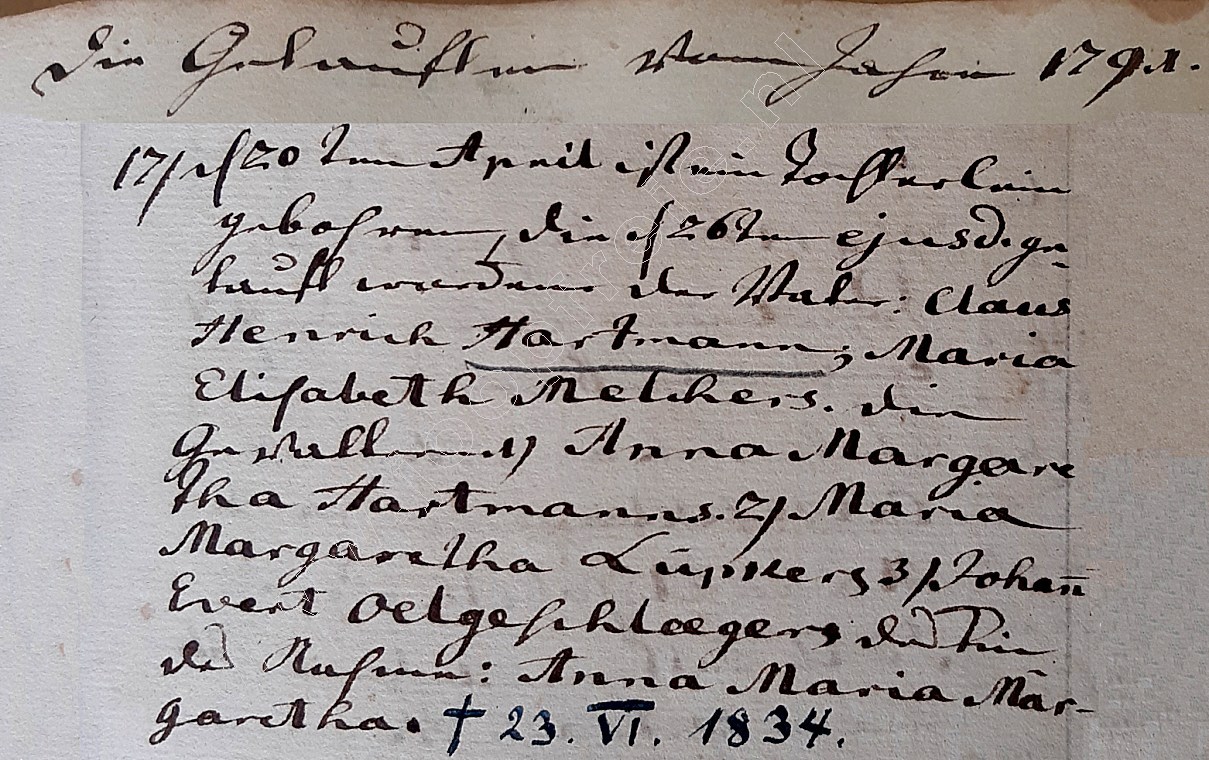 Die Getauften vom Jahre 1791.
17/ d 20ten April ist ein Tochterlein
gebohren, die d 26ten ejusd. ge-
tauft worden der Vater: Claus
Henrich Hartmann; Maria
Elisabeth Melchers. die
Gevattern 1) Anna Margare
tha Hartmanns. 2) Maria
Margaretha Lüpkers 3) Johan̅
Evert Oelgeschlaegers des Kin
des Nahme: Anna Maria Mar-
garetha. † 23. VI. 1834.